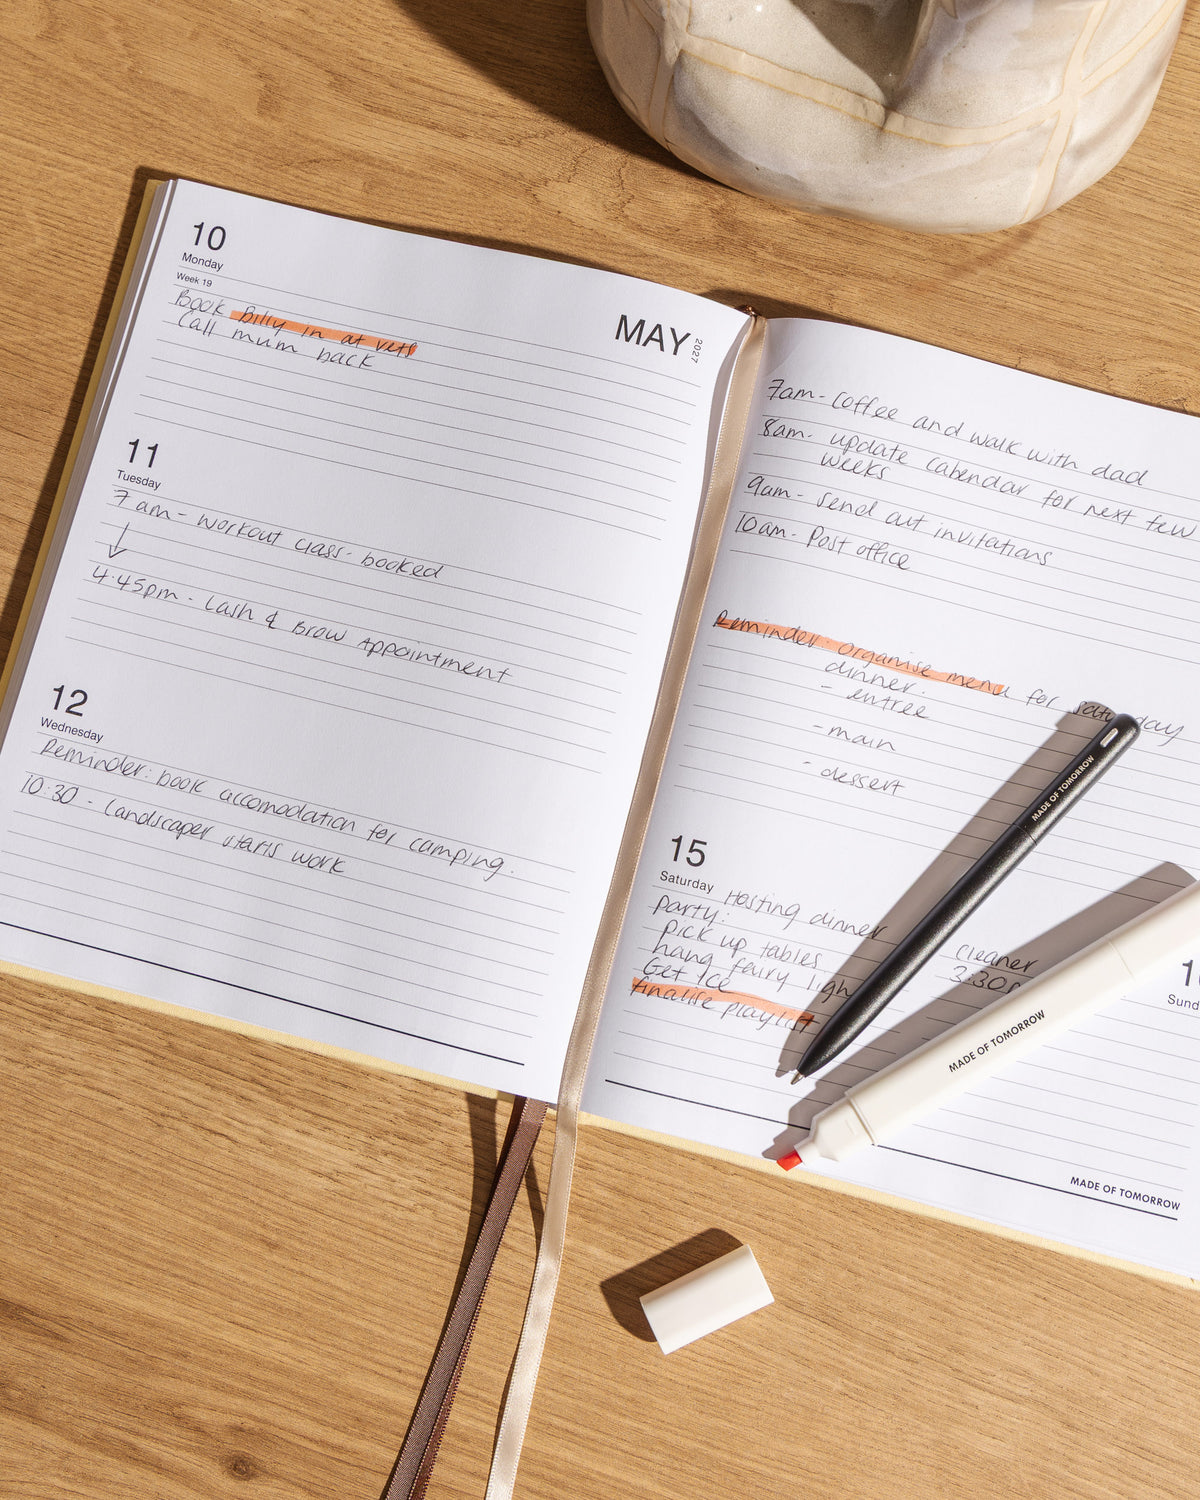 10
Monday
Week 19
Book Billy in at vets
Call mum back
MAY 2027
11
Tuesday
7am - workout class - booked
4:45pm - Lash & Brow Appointment
12
Wednesday
Reminder: book accomodation for camping.
10:30 - Landscaper starts work
7am - coffee and walk with dad
8am - update calendar for next few
weeks
9am - send out invitations
10am - Post office
Reminder: organise menu for saturday
dinner.
- entree
- main
- dessert
15
Saturday
Hosting dinner
party:
Pick up tables
hang fairy
Get Ice
finalise playlist
cleaner
3:30
MADE OF TOMORROW
MADE OF TOMORROW
MADE OF TOMORROW